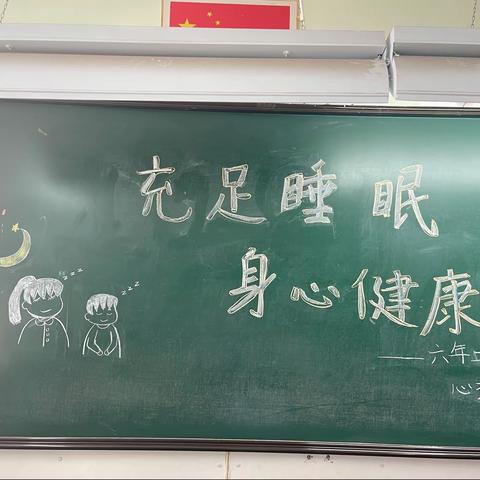 充足睡眠
身心健康
zzz
zzz
——六年
心